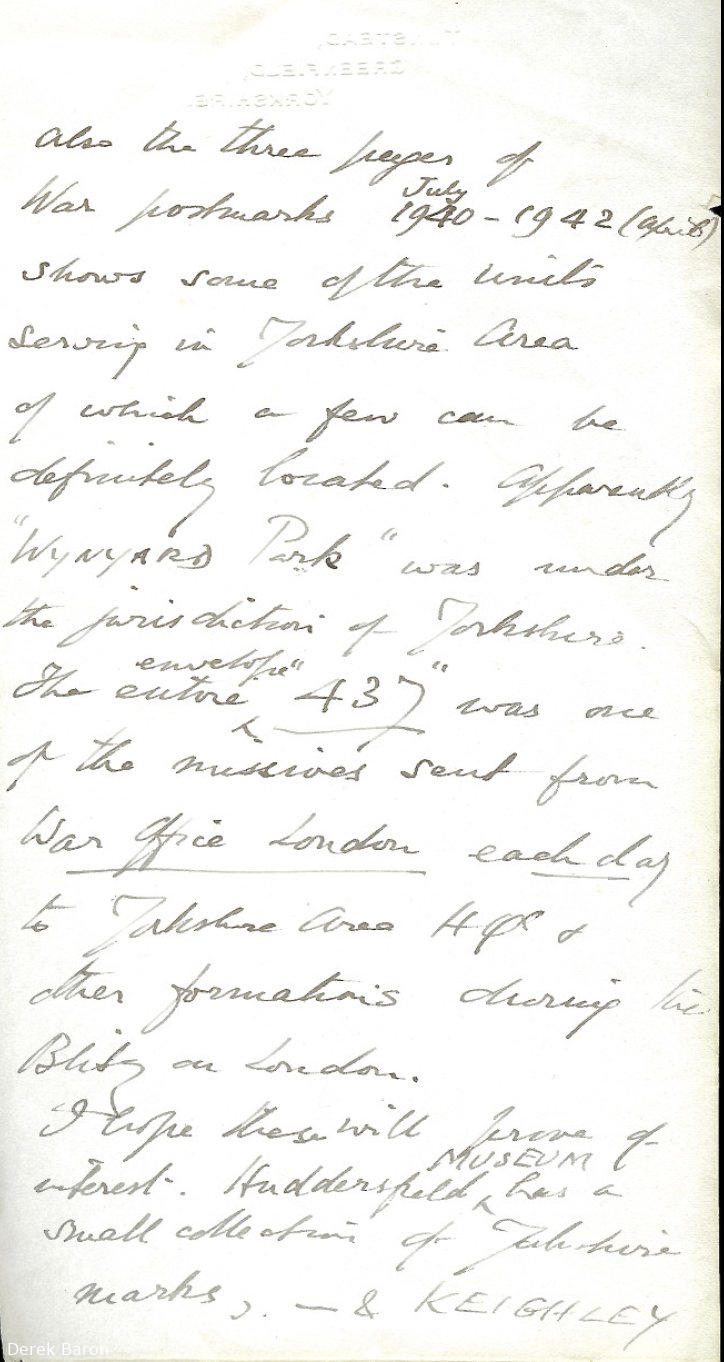 TUNSTEAD,
GREENFIELD,
YORKSHIRE.
Also the three pages of
War postmarks July 1940 - 1942 (April)
shows some of the units
serving in Yorkshire Area
of which a few can be
definitely located. Apparently
"WYNYARD Park" was under
the jurisdiction of Yorkshire.
The entire envelope "437" was one
of the missives sent from
War Office London each day
to Yorkshire Area HQs &
other formations during the
Blitz on London.
I hope these will prove of
interest. Huddersfield MUSEUM has a
small collection of Yorkshire
marks, - & KEIGHLEY
Derek Baron